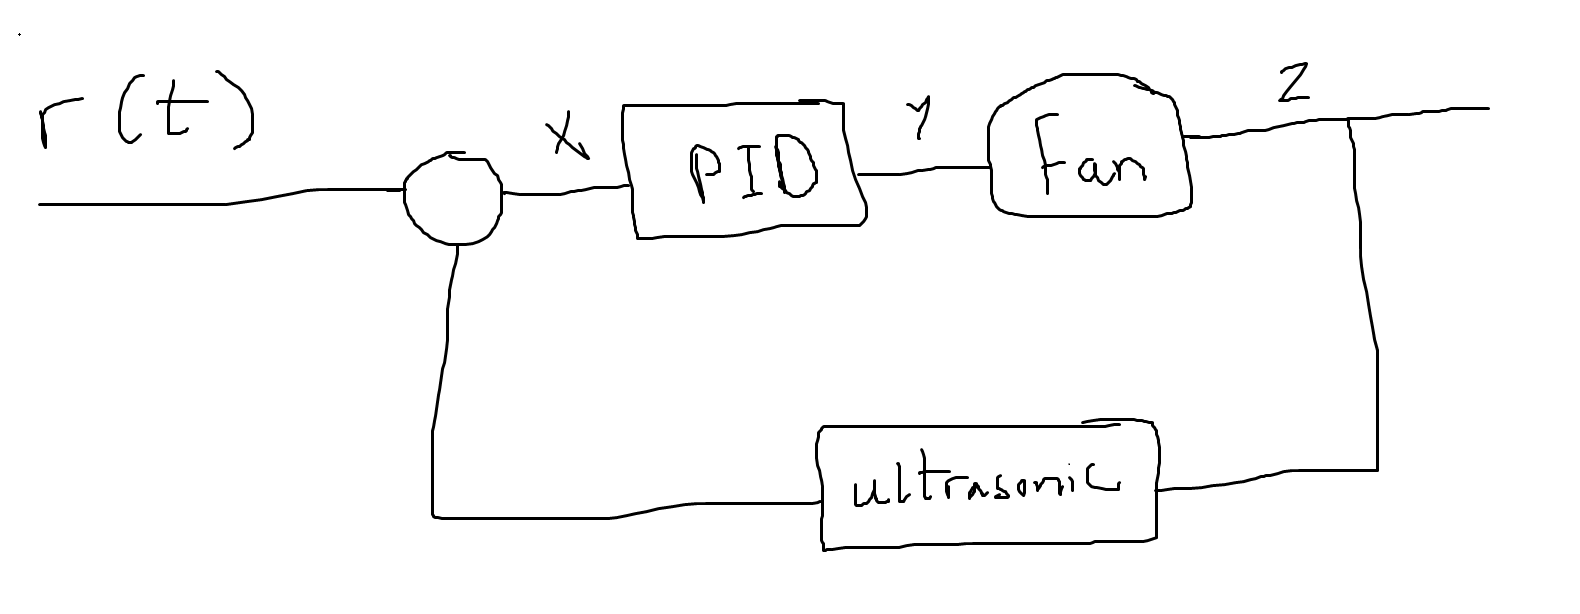 r(t)
X
PID
Y
Fan
Z
ultrasonic